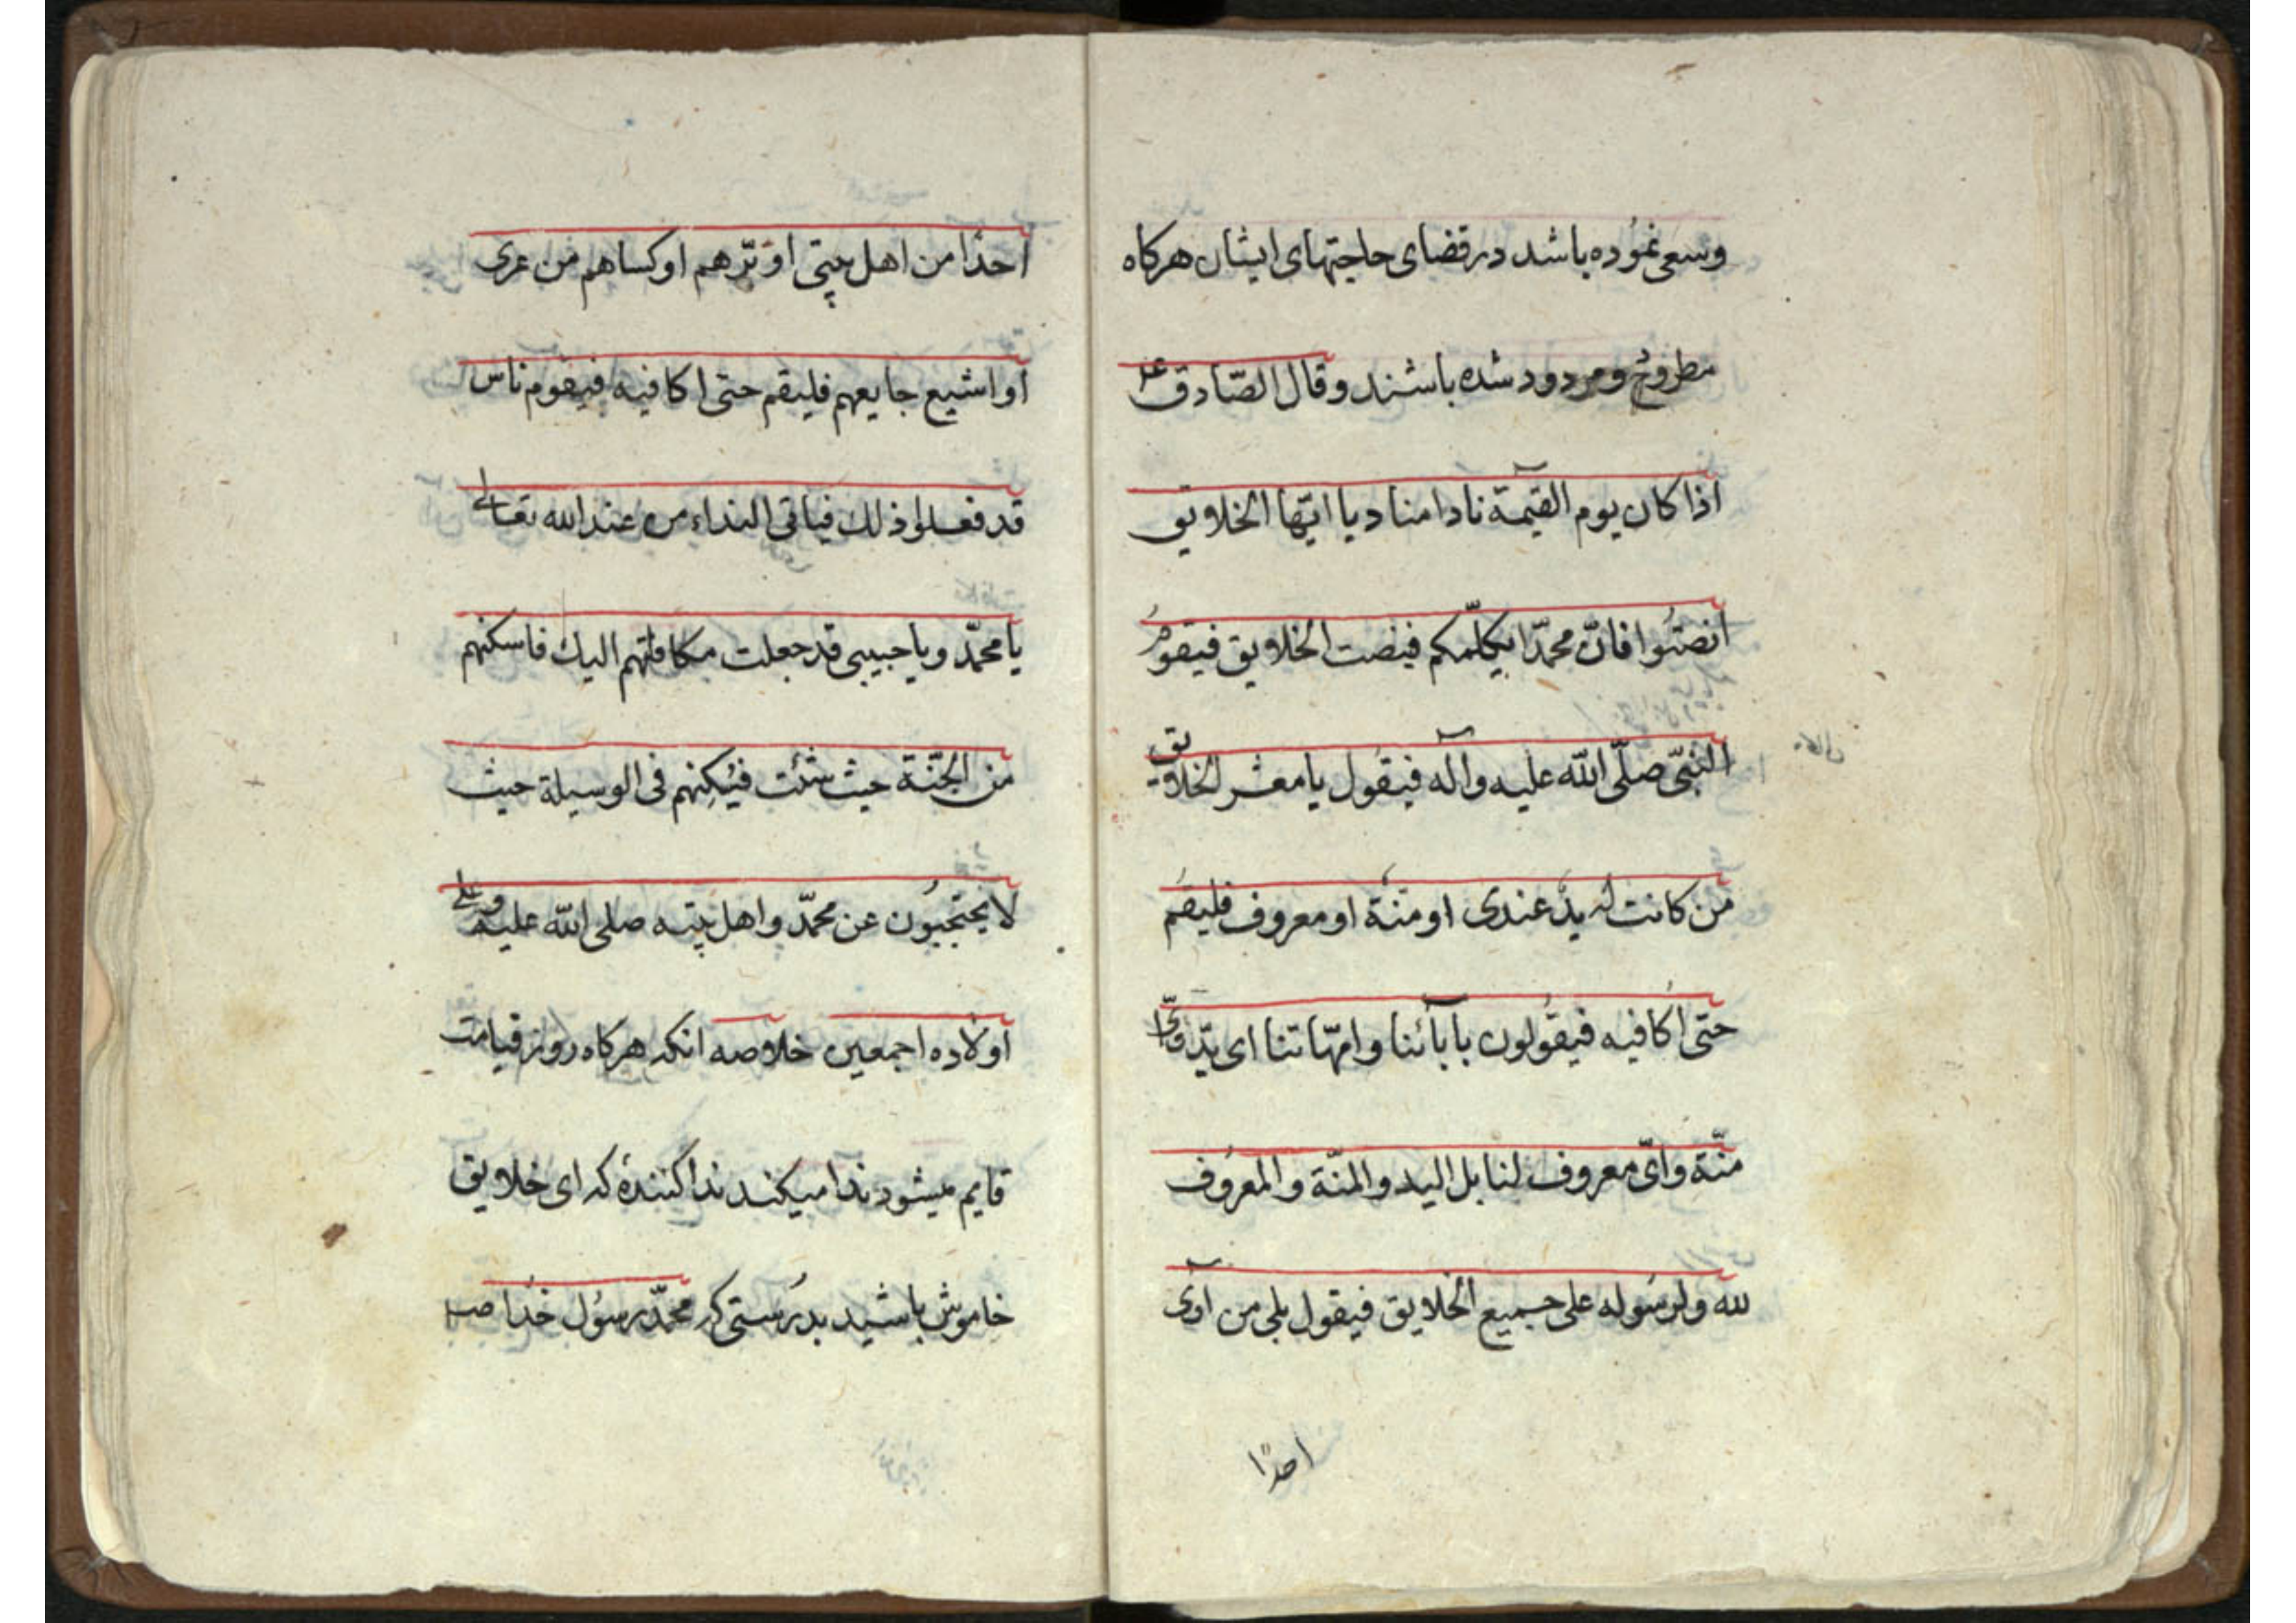 وسعی نموده باشد در قضای حاجتهای ایشان هرکاه
مطروح و مردود شده باشند و قال الصّادق ع
اذا کان یوم القیمة نادا مناد یا ایّها الخلایق
انصتوا فانّ محمّدا یکلّمکم فینصت الخلایق فیقوم
النبیّ صلّی اللّه علیه وآله فیقول یا معشر الخلایق
من کانت له یدٌ عندی او منّة او معروف فلیقم
حتی اُکافیه فیقولون بابآئنا وامّهاتنا ای یدّ وایّ
منّة وایّ معروف لنا بل الید والمنّة والمعروف
لله ولرسوله علی جمیع الخلایق فیقول بلی من آوی
احدًا
احدًا من اهل بیتی او برّهم او کساهم من عری
او اشبع جایعهم فلیقم حتی اکافیه فیقوم ناس
قد فعلوا ذلك فیاتی النداء من عند الله تعالی
یا محمّد ویا حبیبی قد جعلت مکافاتهم الیك فاسکنهم
من الجنّة حیث شئت فیسکنهم فی الوسیلة حیث
لا یحتجبون عن محمّد واهل بیته صلی اللّه علیه وعلی
اولاده اجمعین خلاصه انکه هرکاه روز قیامت
قایم میشود ندا میکند ندا کنندهٔ که ای خلایق
خاموش باشید بدرستی که محمّد رسول خدا ص